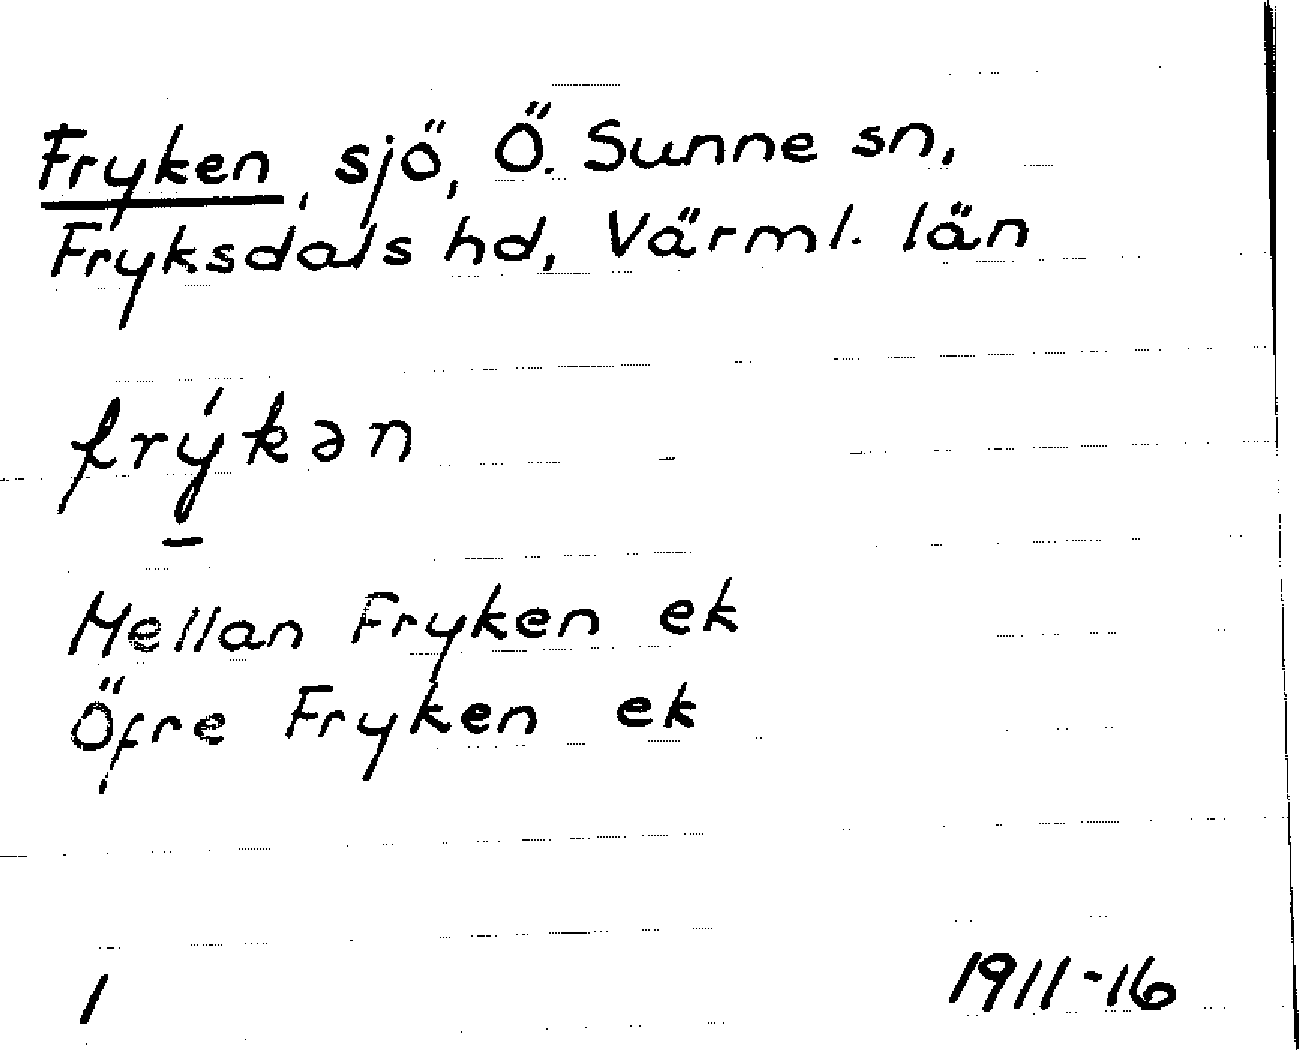 Fryken, sjö, Ö. Sunne sn,
Fryksdals hd, Värml. län
frý̱kən
Mellan Fryken ek
Öfre Fryken ek
1 1911-16